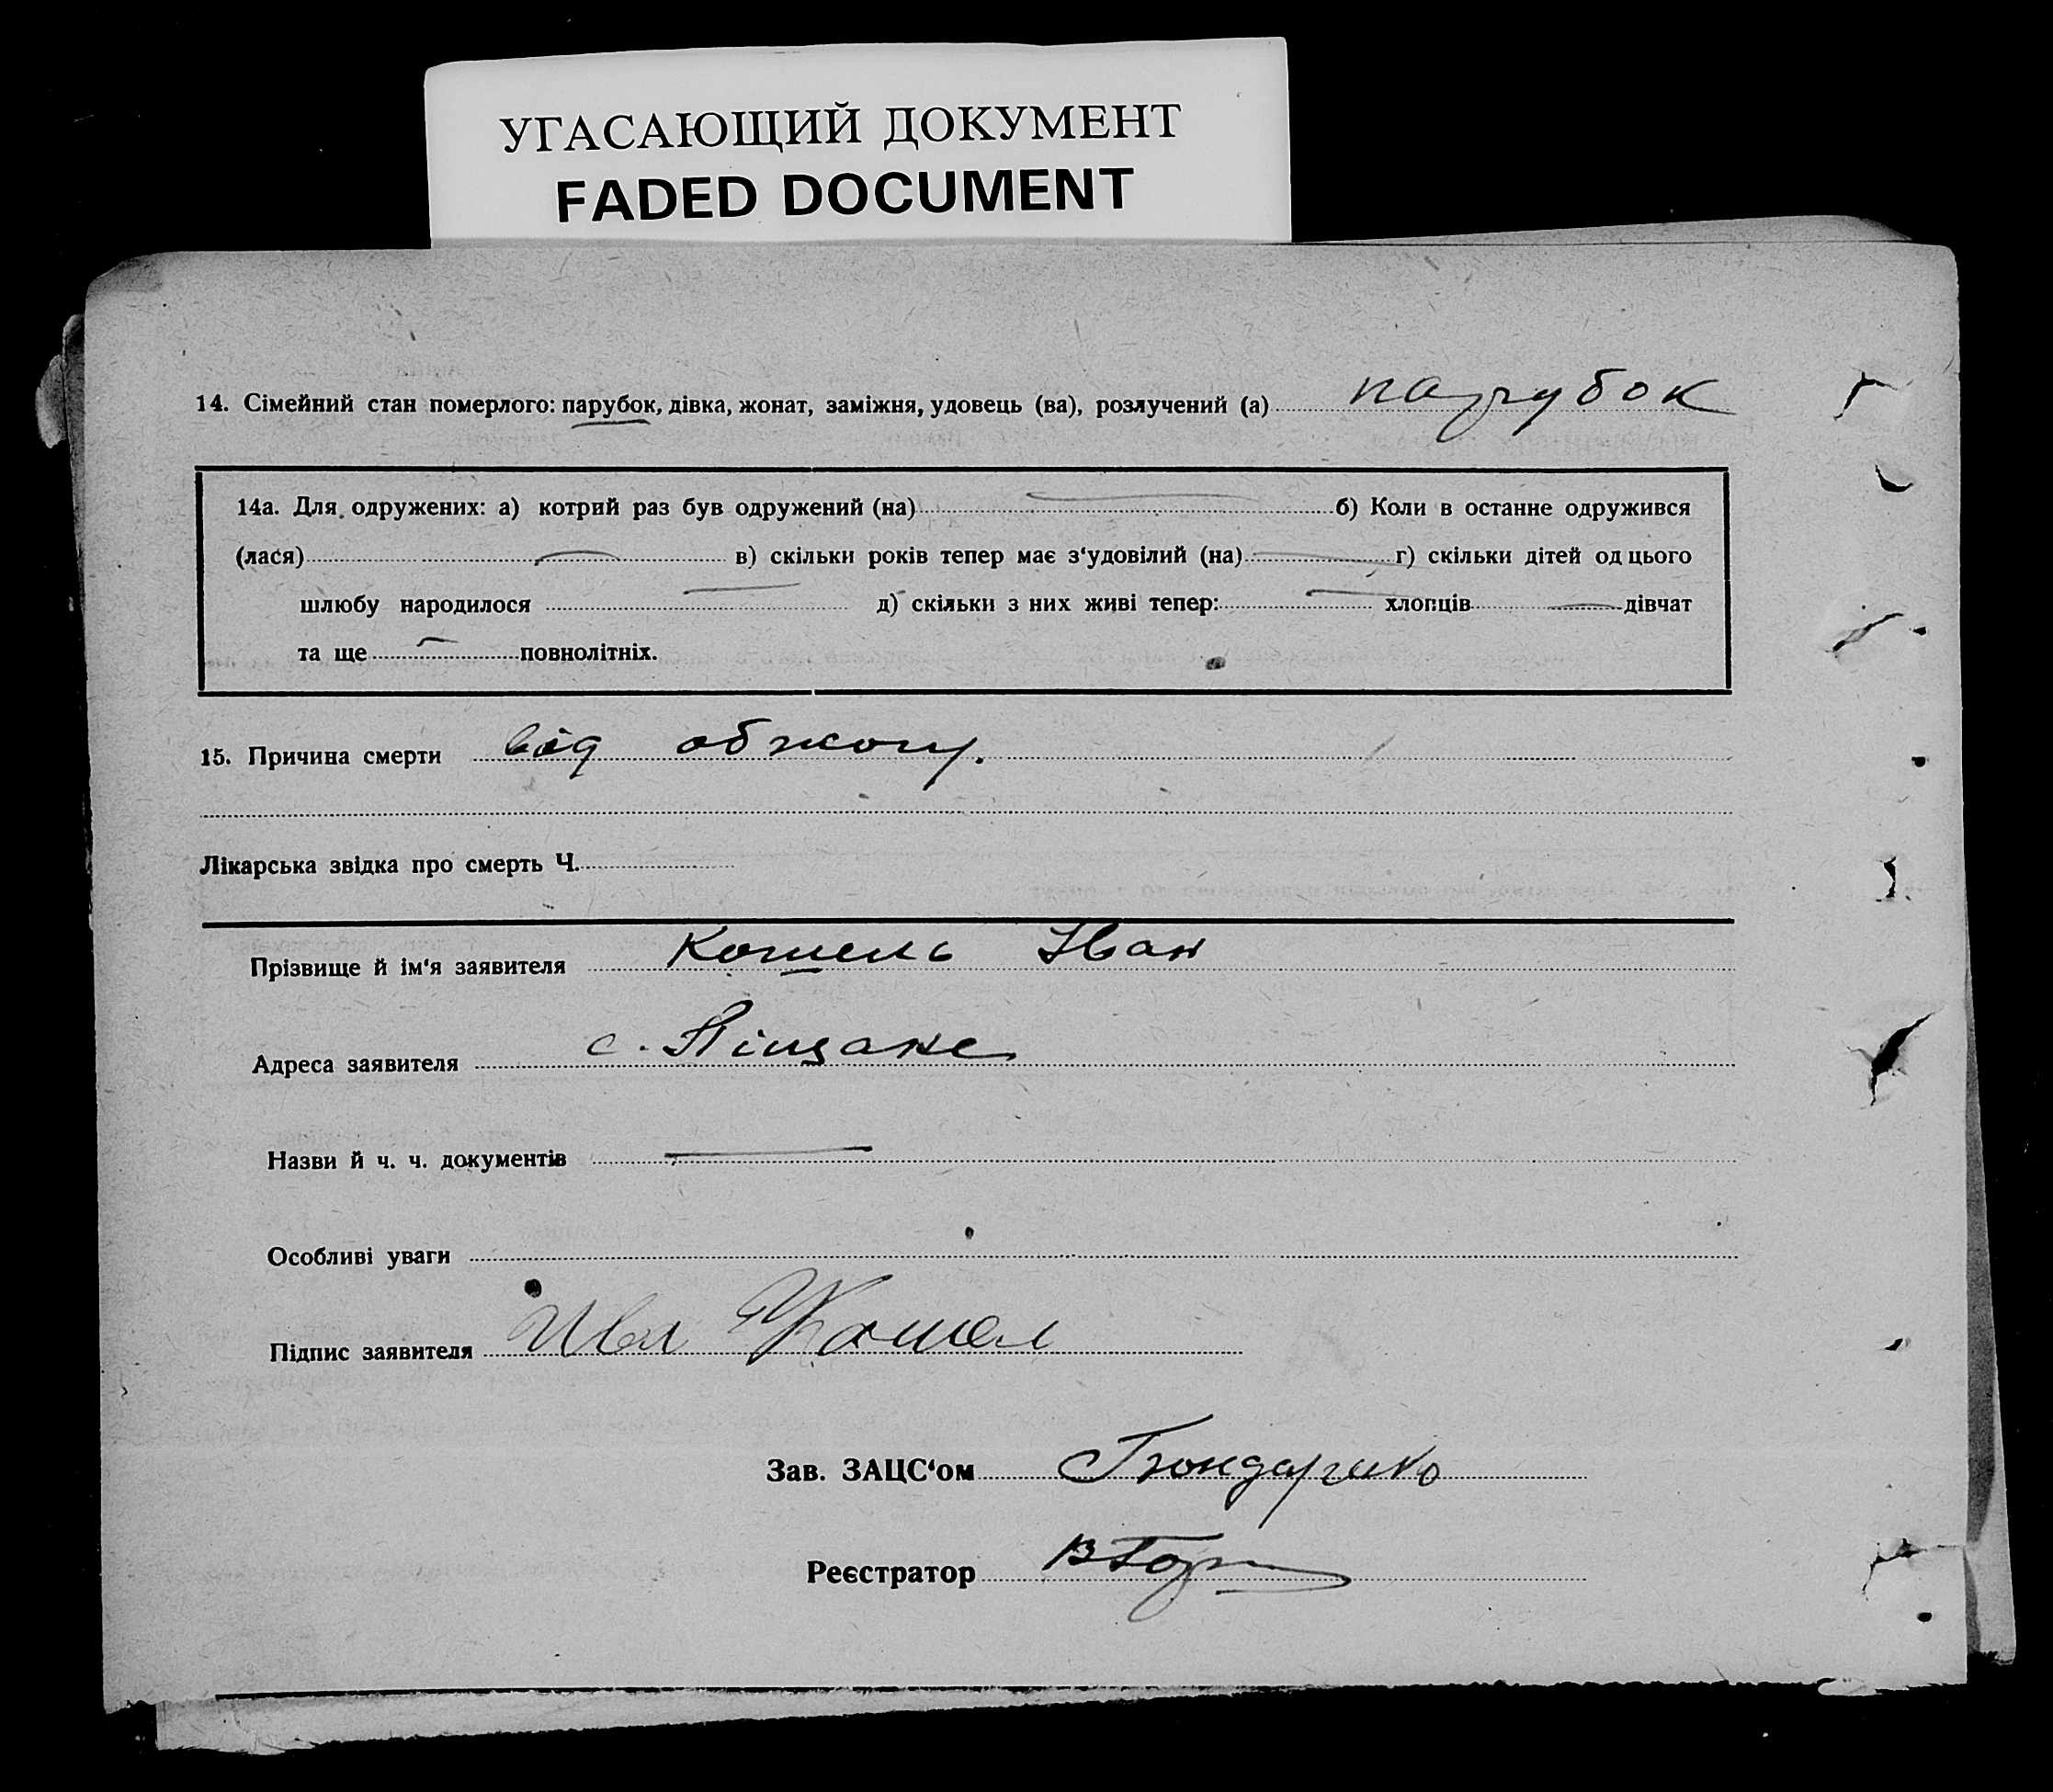 УГАСАЮЩИЙ ДОКУМЕНТ
FADED DOCUMENT
14. Сімейний стан померлого: парубок, дівка, жонат, заміжня, удовець (ва), розлучений (а) парубок
14а. Для одружених: а) котрий раз був одружений (на) б) Коли в останне одружився
(лася) в) скільки років тепер має з‘удовілий (на) г) скільки дітей од цього
шлюбу народилося д) скільки з них живі тепер: хлопців дівчат
та ще повнолітніх.
15. Причина смерти від обжогу.
Лікарська звідка про смерть Ч.
Прізвище й ім‘я заявителя Кошель Іван
Адреса заявителя с. Піщане
Назви й ч. ч. документів
Особливі уваги
Підпис заявителя Ива Кошел
Зав. ЗАЦС‘ом
Реєстратор